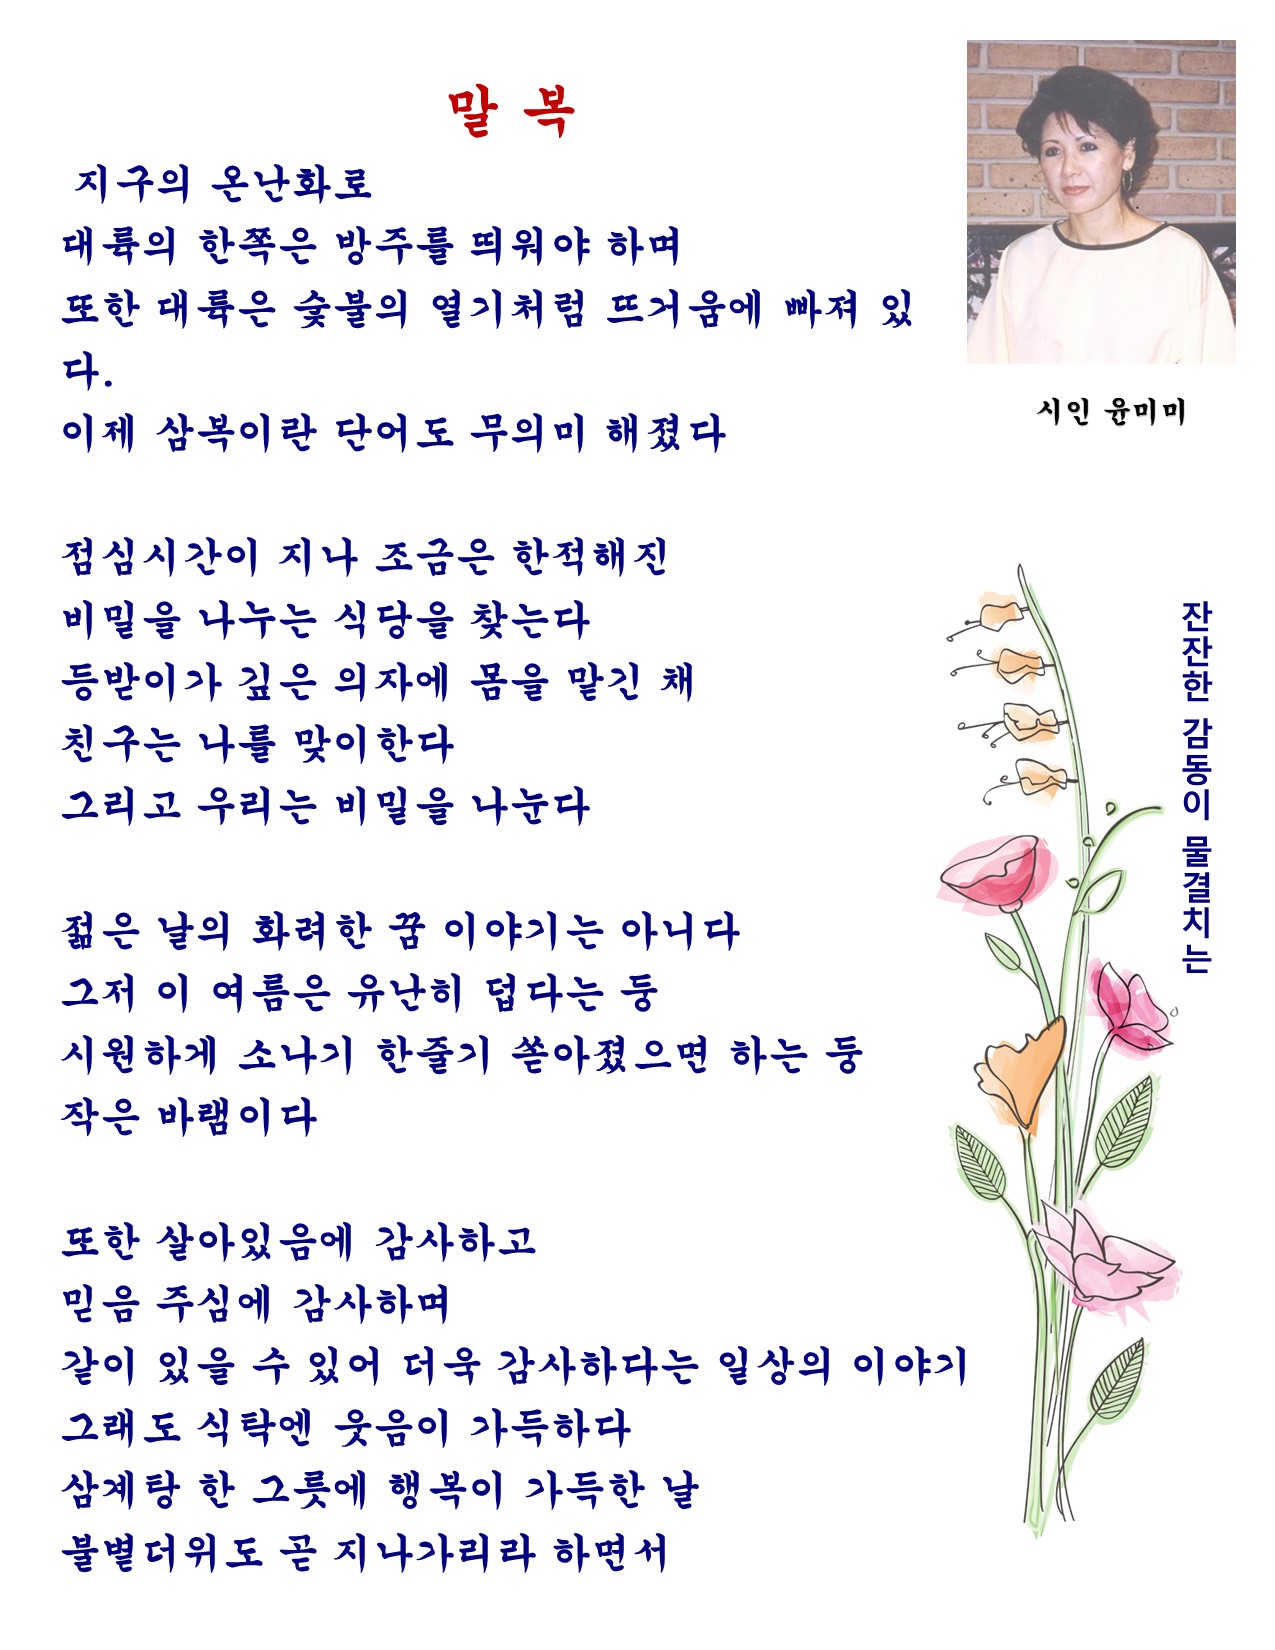 말 복
지구의 온난화로
대륙의 한쪽은 방주를 띄워야 하며
또한 대륙은 숯불의 열기처럼 뜨거움에 빠져 있
다.
이제 삼복이란 단어도 무의미 해졌다
시인 윤미미
점심시간이 지나 조금은 한적해진
비밀을 나누는 식당을 찾는다
등받이가 깊은 의자에 몸을 맡긴 채
친구는 나를 맞이한다
그리고 우리는 비밀을 나눈다
젊은 날의 화려한 꿈 이야기는 아니다
그저 이 여름은 유난히 덥다는 둥
시원하게 소나기 한줄기 쏟아졌으면 하는 둥
작은 바램이다
또한 살아있음에 감사하고
믿음 주심에 감사하며
같이 있을 수 있어 더욱 감사하다는 일상의 이야기
그래도 식탁엔 웃음이 가득하다
삼계탕 한 그릇에 행복이 가득한 날
불볕더위도 곧 지나가리라 하면서
잔잔한 감동이 물결치는